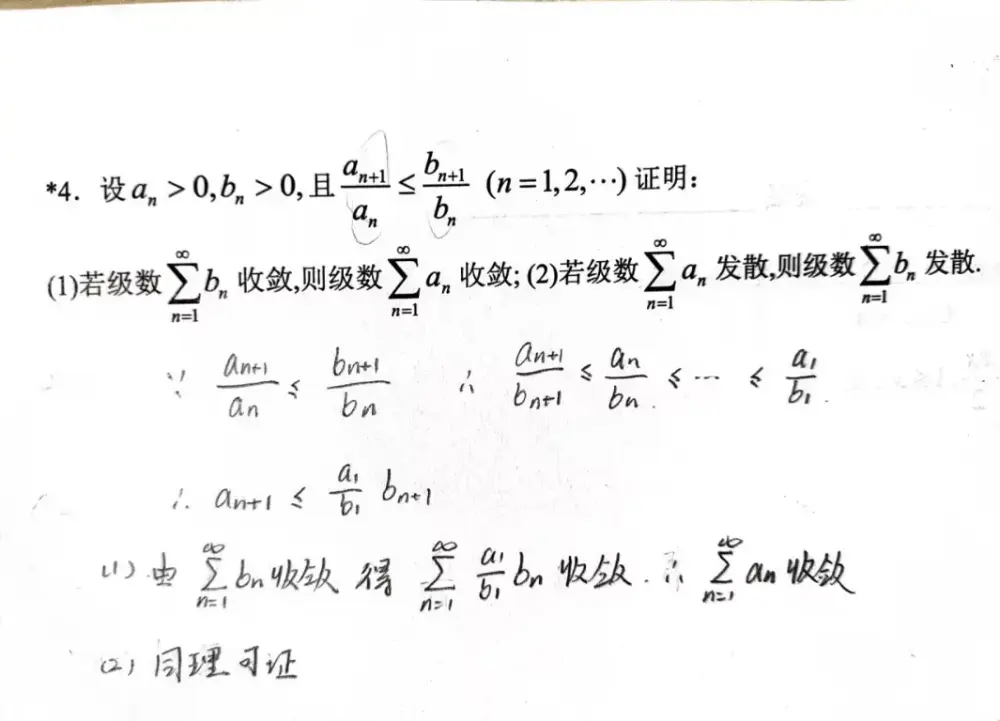 *4. 设 aₙ > 0, bₙ > 0, 且 aₙ₊₁/aₙ ≤ bₙ₊₁/bₙ (n = 1,2,⋯) 证明:
(1)若级数 ∑_{n=1}^{∞} bₙ 收敛,则级数 ∑_{n=1}^{∞} aₙ 收敛; (2)若级数 ∑_{n=1}^{∞} aₙ 发散,则级数 ∑_{n=1}^{∞} bₙ 发散.
∵ aₙ₊₁/aₙ ≤ bₙ₊₁/bₙ ∴ aₙ₊₁/bₙ₊₁ ≤ aₙ/bₙ ≤ ⋯ ≤ a₁/b₁.
∴ aₙ₊₁ ≤ a₁/b₁ bₙ₊₁
(1) 由 ∑_{n=1}^{∞} bₙ 收敛 得 ∑_{n=1}^{∞} a₁/b₁ bₙ 收敛. ∴ ∑_{n=1}^{∞} aₙ 收敛
(2) 同理可证